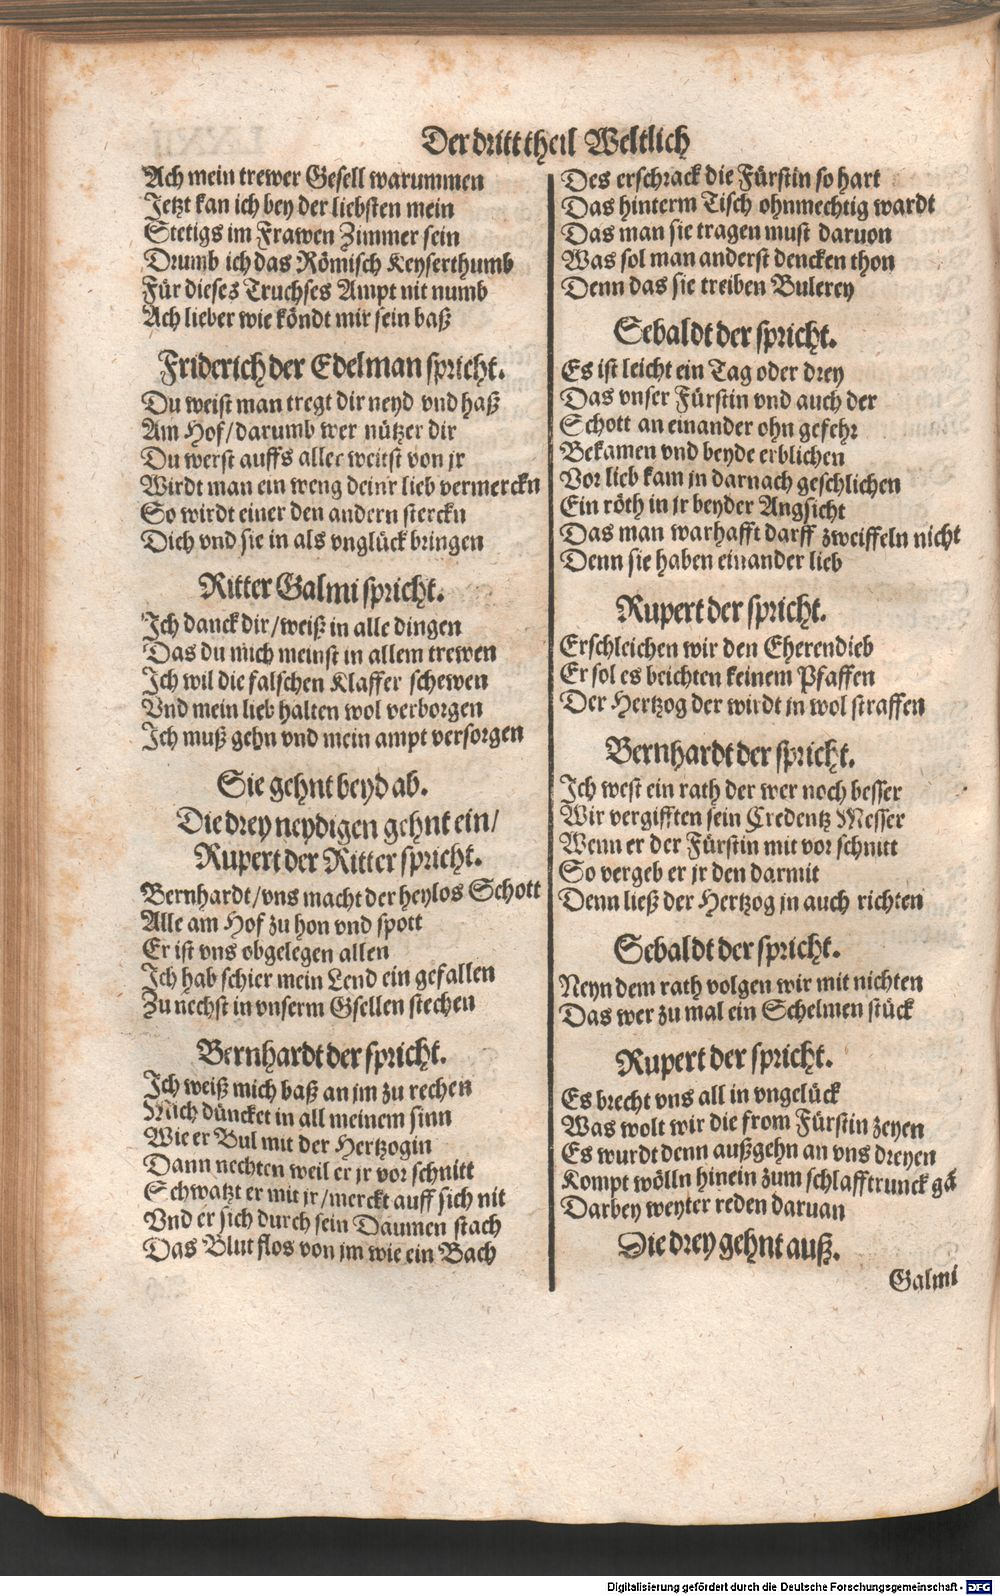 Der dritt theil Weltlich
Ach mein trewer Gesell warummen
Jetzt kan ich bey der liebsten mein
Stetigs im Frawen Zimmer sein
Drumb ich das Römisch Keyserthumb
Für dieses Truchses Ampt nit numb
Ach lieber wie köndt mir sein baß
Friderich der Edelman spricht.
Du weist man tregt dir neyd vnd haß
Am Hof/darumb wer nützer dir
Du werst auffs aller weitst von jr
Wirdt man ein weng deinr lieb vermerckn
So wirdt einer den andern sterckn
Dich vnd sie in als vnglück bringen
Ritter Galmi spricht.
Ich danck dir/weiß in alle dingen
Das du mich meinst in allem trewen
Ich wil die falschen Klaffer schewen
Vnd mein lieb halten wol verborgen
Ich muß gehn vnd mein ampt versorgen
Sie gehnt beyd ab.
Die drey neydigen gehnt ein/
Rupert der Ritter spricht.
Bernhardt/vns macht der heylos Schott
Alle am Hof zu hon vnd spott
Er ist vns obgelegen allen
Ich hab schier mein Lend ein gefallen
Zu nechst in vnserm Gsellen stechen
Bernhardt der spricht.
Ich weiß mich baß an jm zu rechen
Mich düncket in all meinem sinn
Wie er Bul mit der Hertzogin
Dann nechten weil er jr vor schnitt
Schwatzt er mit jr/merckt auff sich nit
Vnd er sich durch sein Daumen stach
Das Blut flos von jm wie ein Bach
Des erschrack die Fürstin so hart
Das hinterm Tisch ohnmechtig wardt
Das man sie tragen must daruon
Was sol man anderst dencken thon
Denn das sie treiben Bulerey
Sebaldt der spricht.
Es ist leicht ein Tag oder drey
Das vnser Fürstin vnd auch der
Schott an einander ohn gefehr
Bekamen vnd beyde erblichen
Vor lieb kam jn darnach geschlichen
Ein röth in jr beyder Angsicht
Das man warhafft darff zweiffeln nicht
Denn sie haben einander lieb
Rupert der spricht.
Erschleichen wir den Eherendieb
Er sol es beichten keinem Pfaffen
Der Hertzog der wirdt jn wol straffen
Bernhardt der spricht.
Ich west ein rath der wer noch besser
Wir vergifften sein Credentz Messer
Wenn er der Fürstin mit vor schnitt
So vergeb er jr den darmit
Denn ließ der Hertzog jn auch richten
Sebaldt der spricht.
Neyn dem rath volgen wir mit nichten
Das wer zu mal ein Schelmen stück
Rupert der spricht.
Es brecht vns all in vngelück
Was wolt wir die from Fürstin zeyen
Es wurdt denn außgehn an vns dreyen
Kompt wölln hinein zum schlafftrunck gā
Darbey weyter reden daruan
Die drey gehnt auß.
Galmi
Digitalisierung gefördert durch die Deutsche Forschungsgemeinschaft - DFG